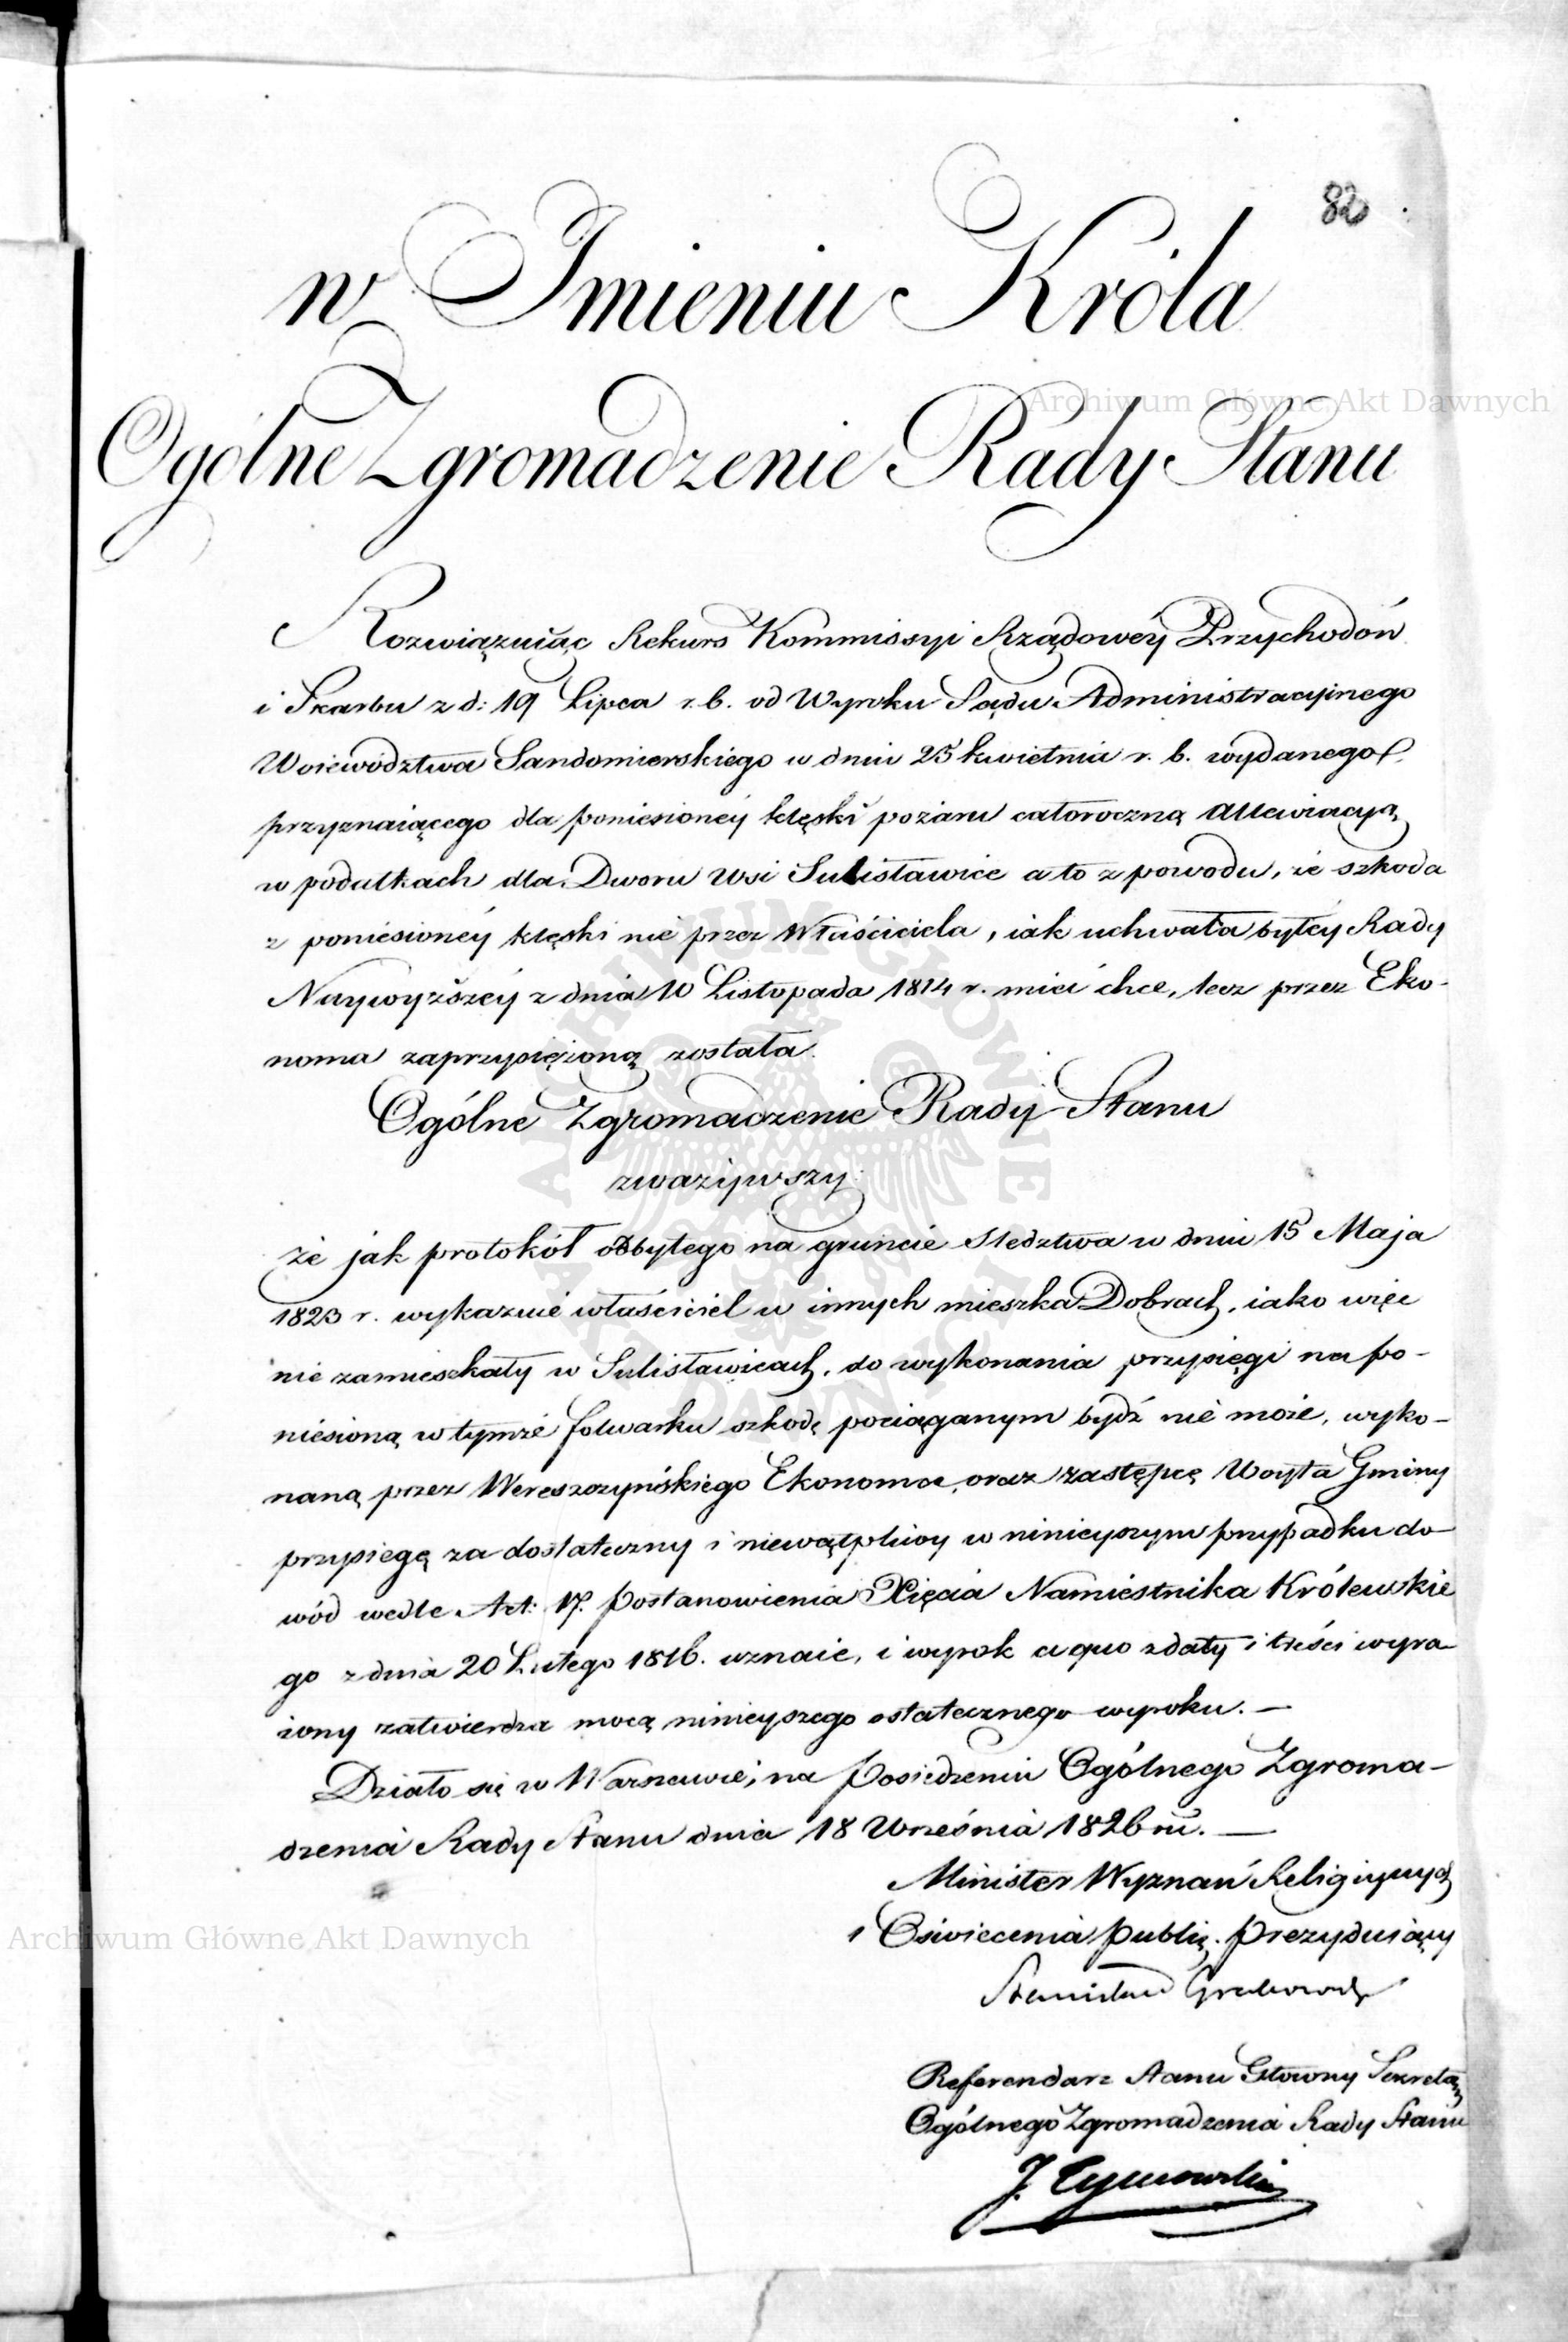 82
w Imieniu Króla
Ogólne Zgromadzenie Rady Stanu
Rozwiązuiąc Rekurs Kommissyi Rządowéy Przychodów
i Skarbu z d: 19 Lipca r. b. od Wyroku Sądu Administracyjnego
Woiewództwa Sandomierskiego w dniu 25 kwietnia r. b. wydanego
przyznaiącego dla poniesionéy klęski pożaru całoroczną allewiacyą
w podatkach dla Dworu Wsi Sulisławice a to z powodu, że szkoda
z poniesionéy klęski nie przez Właściciela, iak uchwała byłéy Rady
Naywyższéy z dnia 10 Listopada 1814 r. mieć chce, lecz przez Eko-
noma zaprzysiężoną została.
Ogólne Zgromadzenie Rady Stanu
zważywszy
że jak protokół odbytego na gruncie śledztwa w dniu 15 Maja
1823 r. wykazuie właściciel w innych mieszka Dobrach, iako więc
nie zamieszkały w Sulisławicach, do wykonania przysięgi na po-
niesioną w tymże folwarku szkodę pociąganym bydź nie może, wyko-
naną przez Wereszczyńskiego Ekonoma, oraz zastępcę Woyta Gminy
przysięgę za dostateczny i niewątpliwy w ninieyszym przypadku do-
wód wedle Art: 17. Postanowienia Xięcia Namiestnika Królewskie
go z dnia 20 Lutego 1816. uznaie, i wyrok a quo z daty i treści wyra-
żony zatwierdza mocą ninieyszego ostatecznego wyroku. —
Działo się w Warszawie, na Posiedzeniu Ogólnego Zgroma-
dzenia Rady Stanu dnia 18 Września 1826 ru. —
Minister Wyznań Religiynych
i Oświecenia Public. Prezyduiący
Stanisław Grabowski
Referendarz Stanu Głowny Sekretarz
Ogólnego Zgromadzenia Rady Stanu
J. Tymowski
Archiwum Główne Akt Dawnych
Archiwum Główne Akt Dawnych
ARCHIWUM GŁÓWNE
AKT DAWNYCH